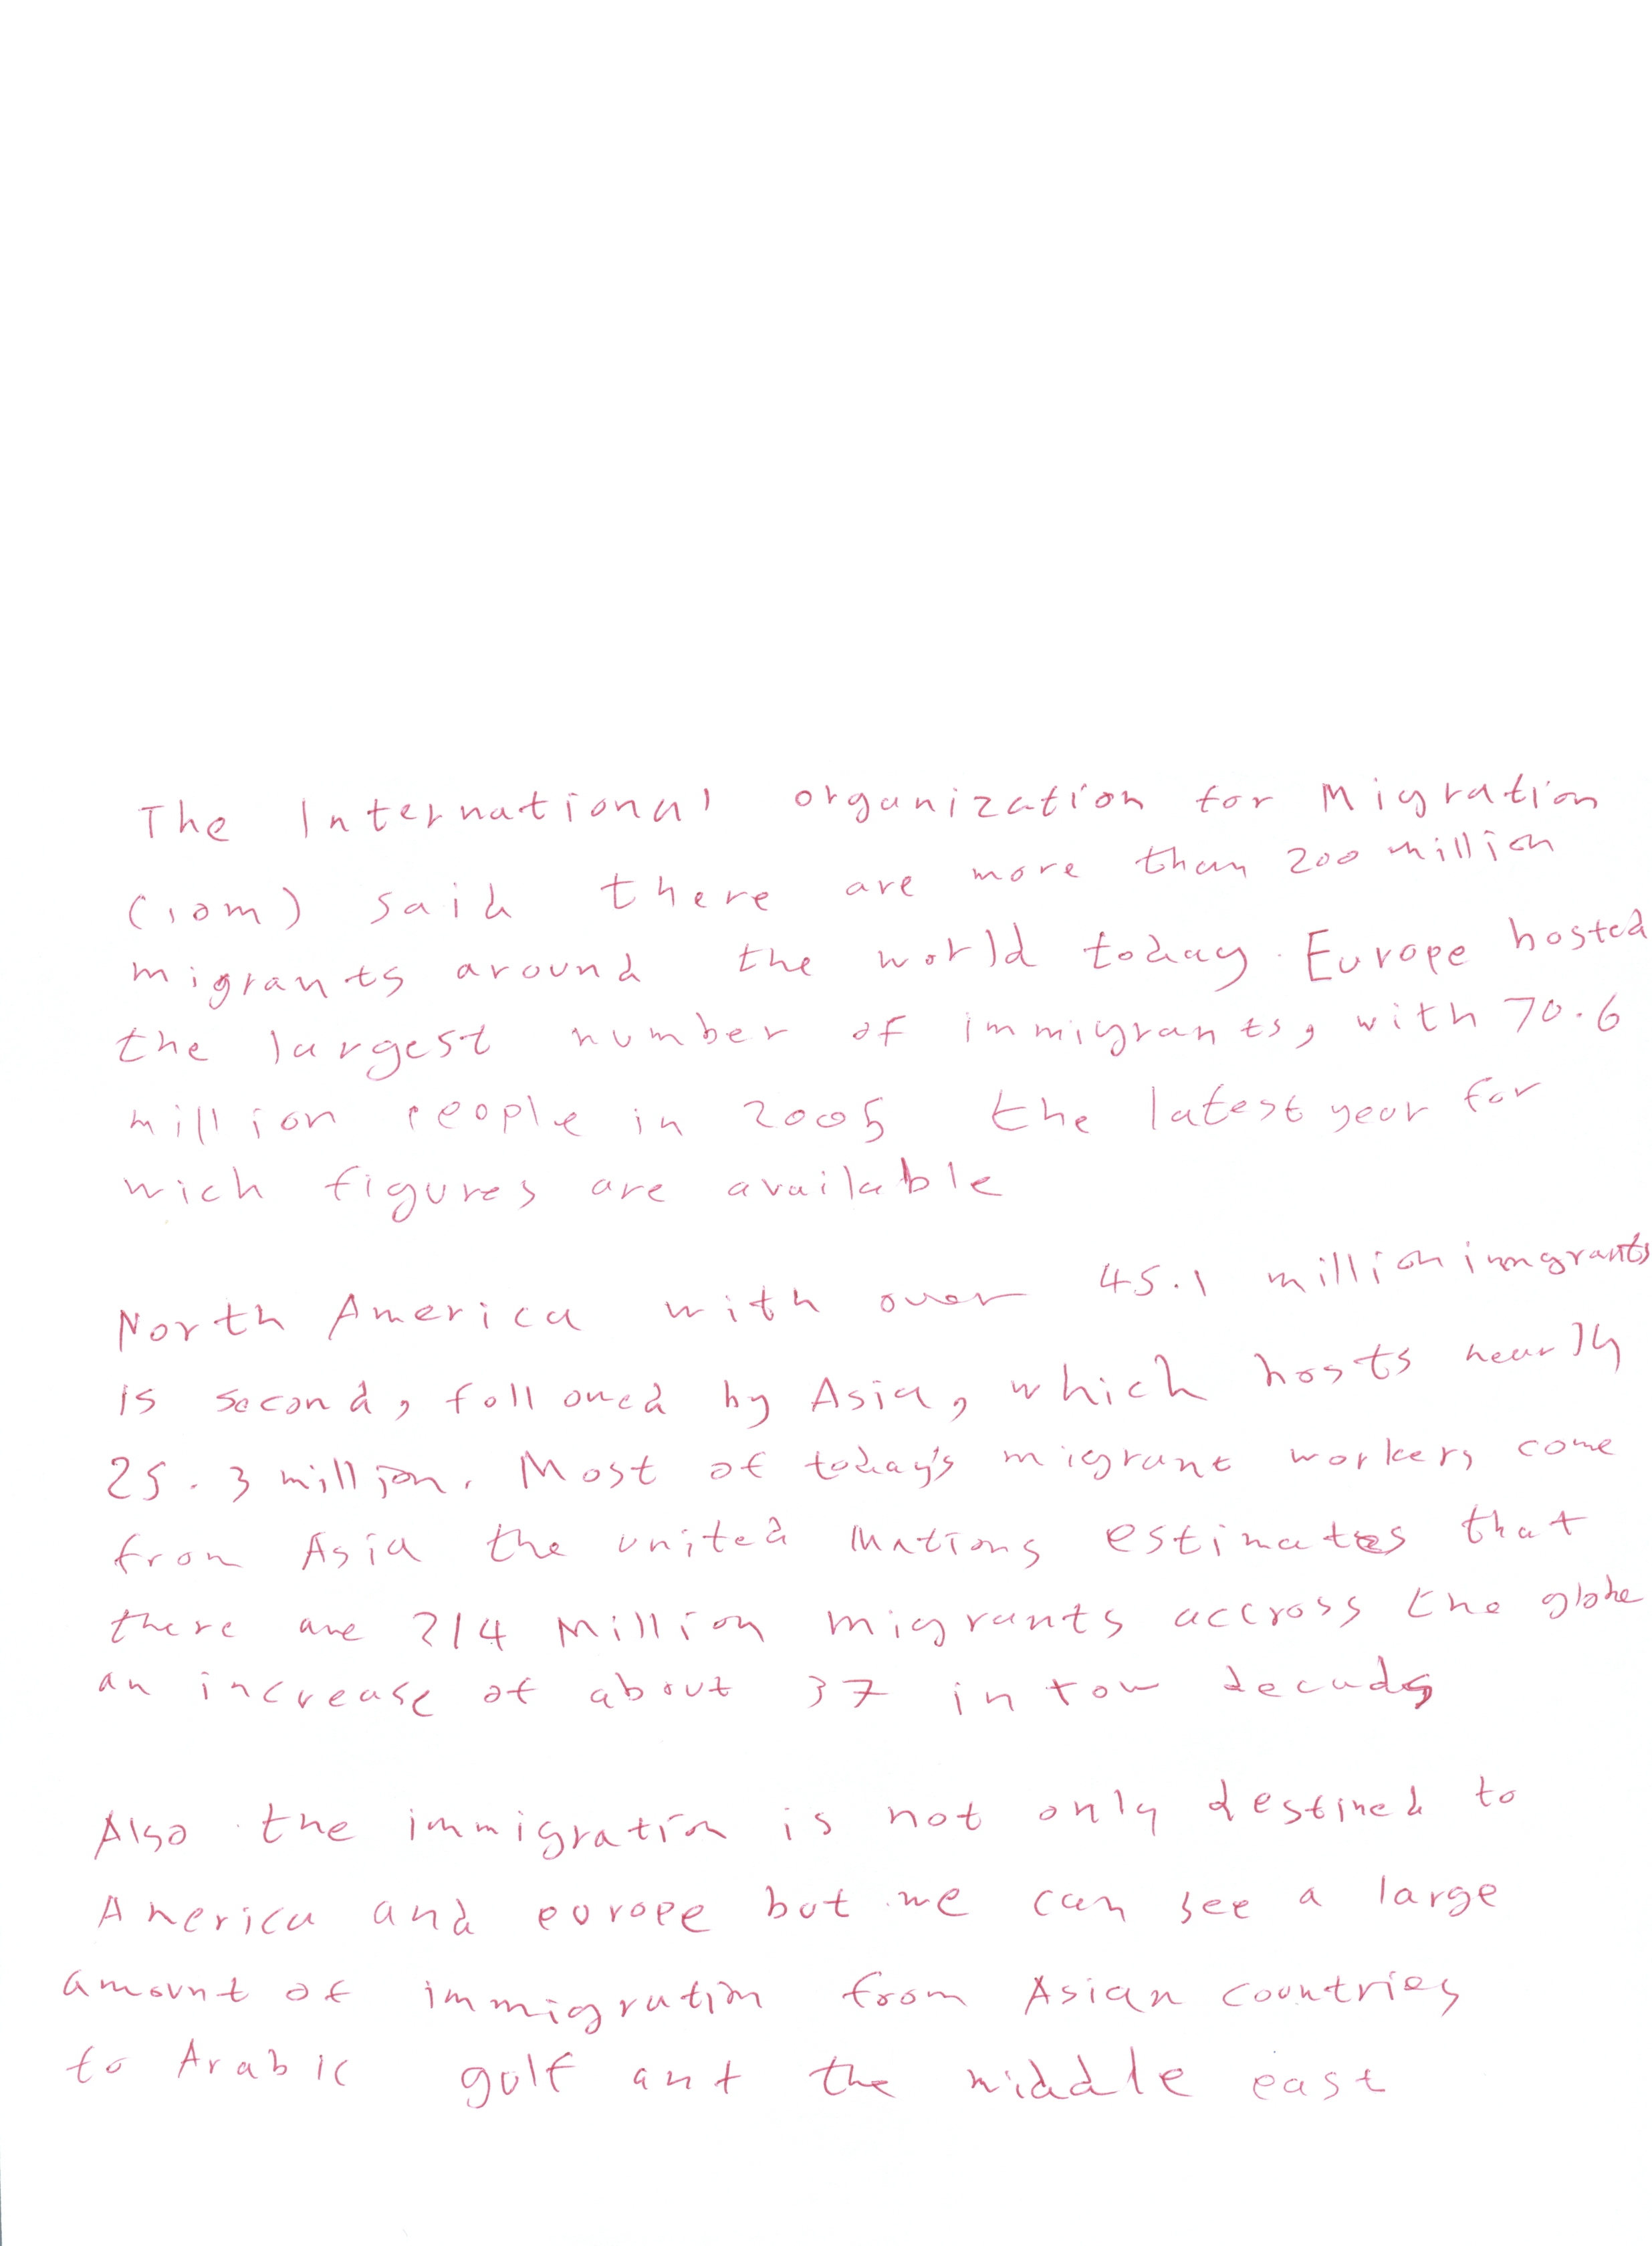 The International organization for Migration
(iom) said there are more than 200 million
migrants around the world today. Europe hosted
the largest number of immigrants, with 70.6
million people in 2005 the latest year for
wich figures are available
North America with over 45.1 million immgrants
is second, followed by Asia, which hosts nearly
25.3 million. Most of today's migrant workers come
from Asia the united nations estimates that
there are 214 Million migrants accross the globe
an increase of about 37 in tow decads
Also the immigration is not only destined to
America and europe but we can see a large
amount of immigration from Asian countries
to Arabic golf ant the middle east